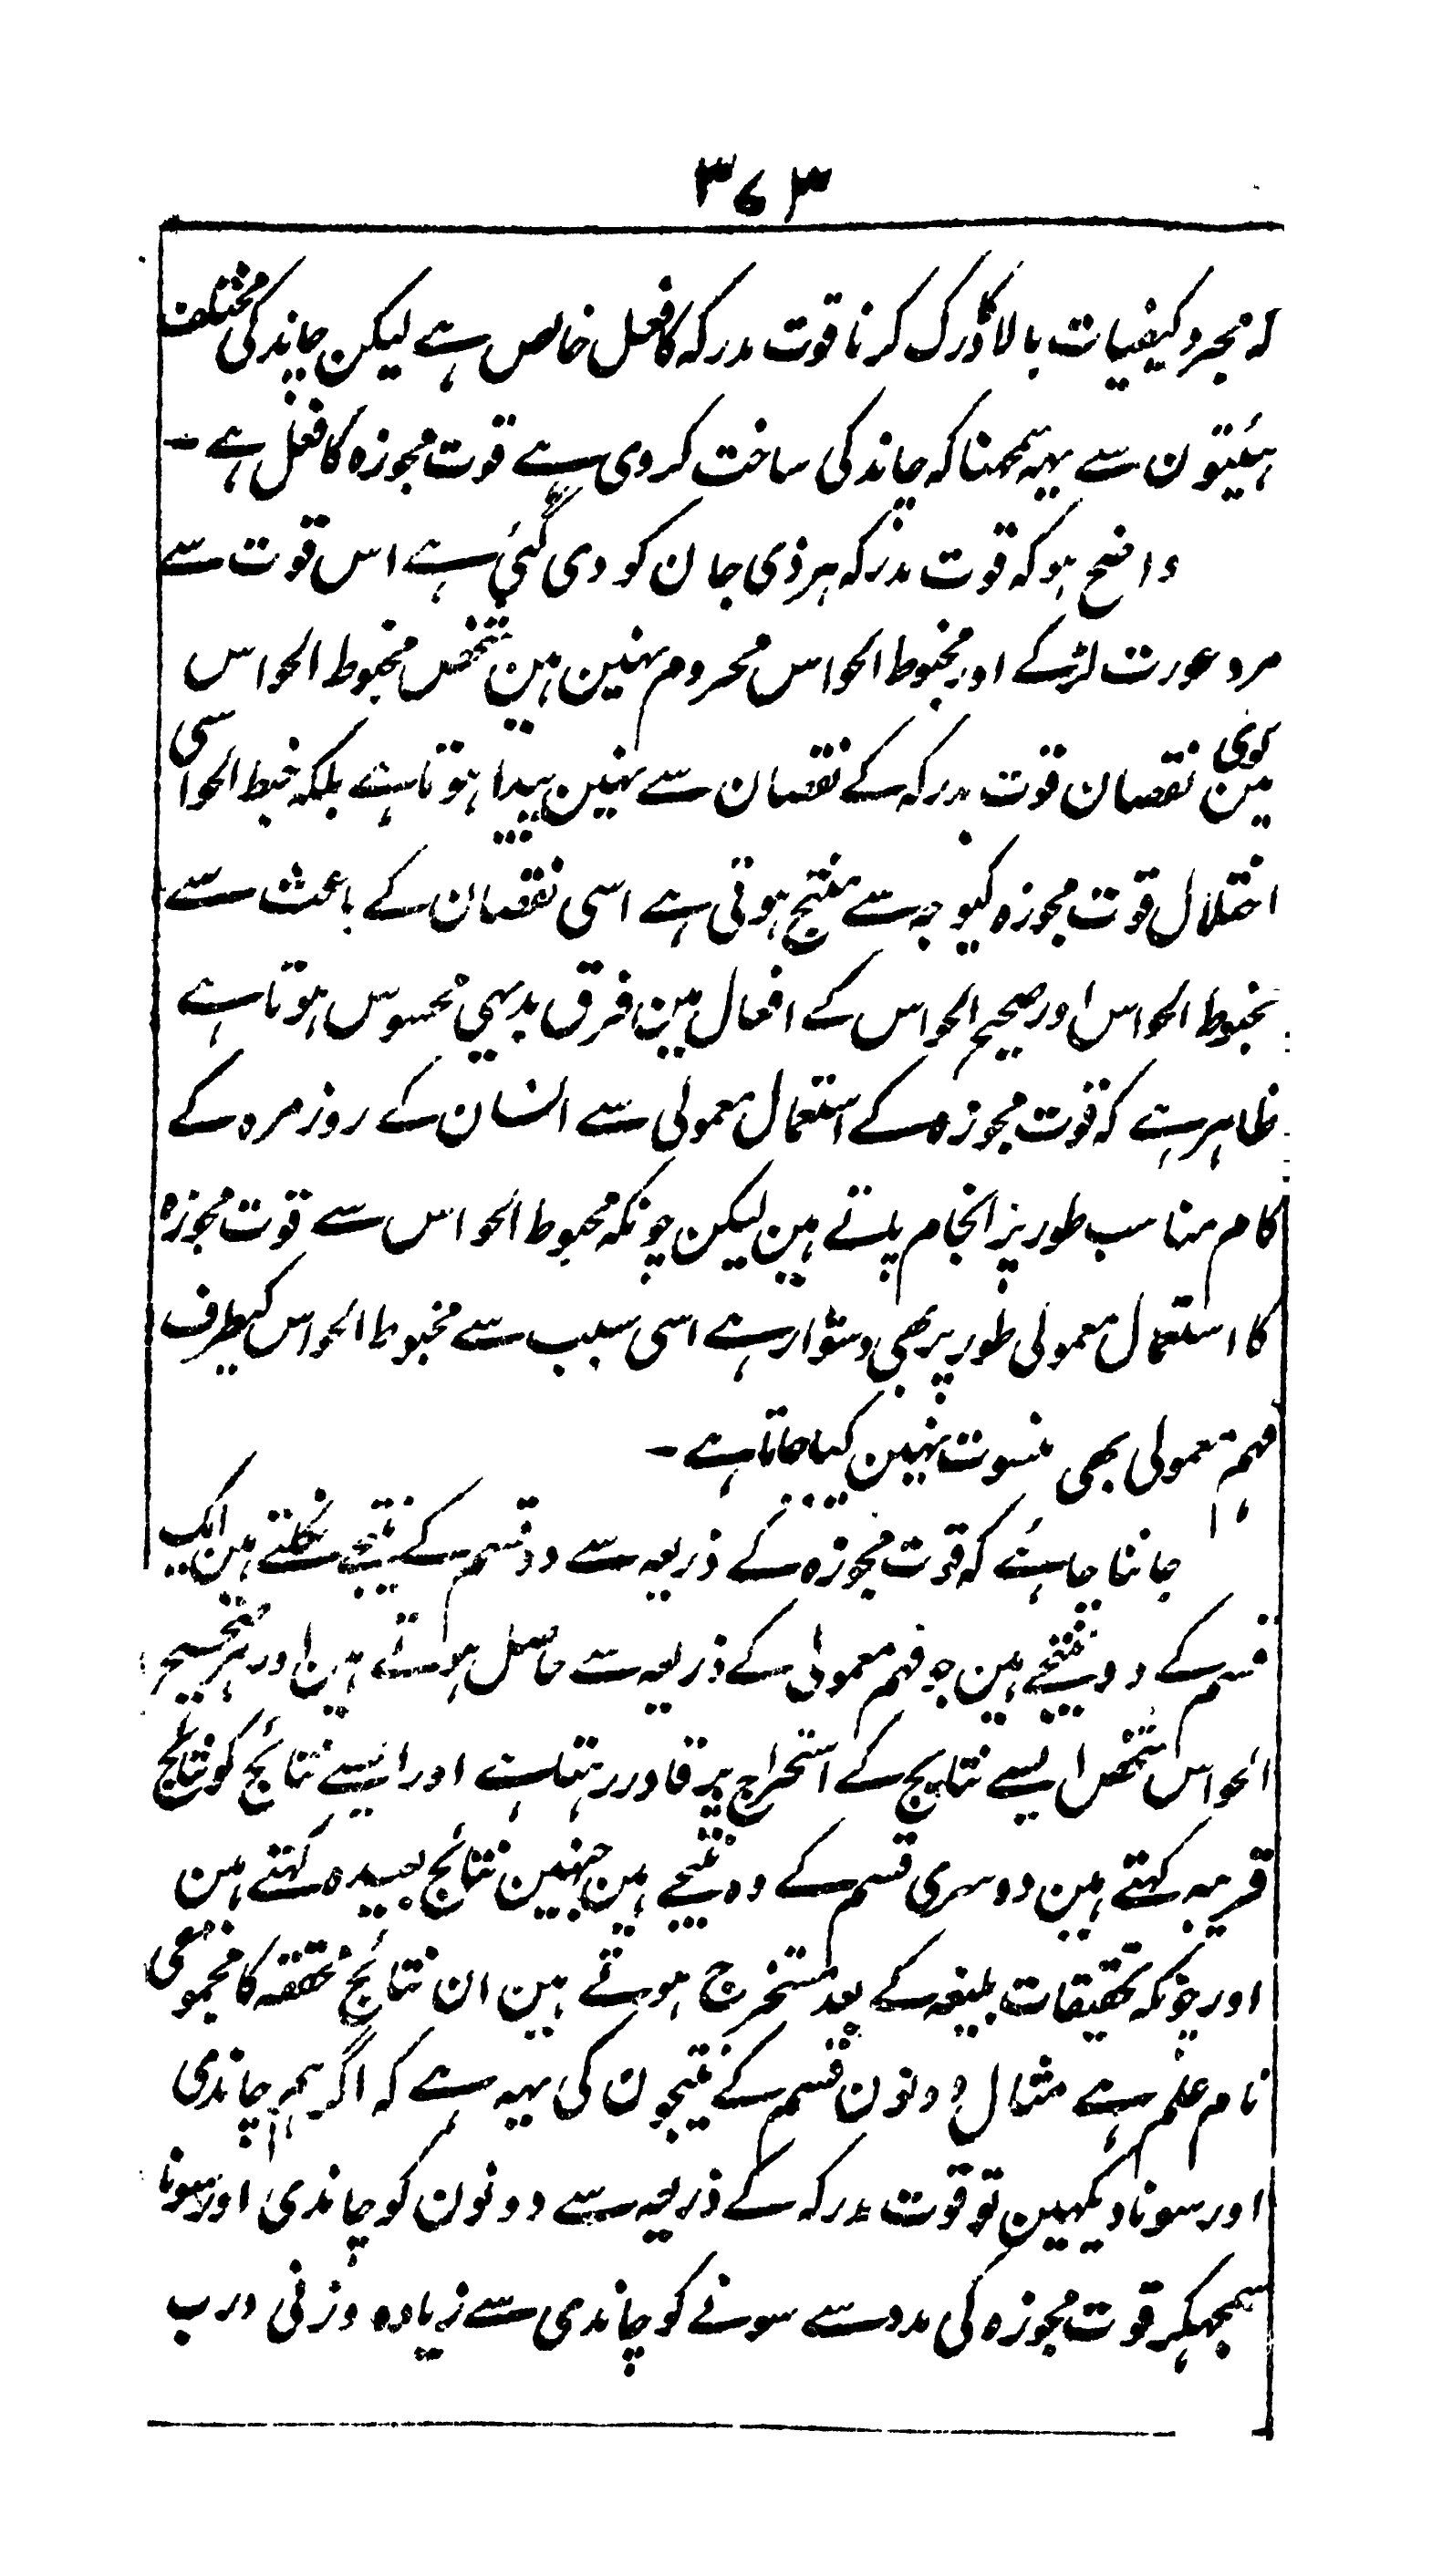 ۳۶۳
کہ مجرد کیفیات بالا کا درک کرنا قوت مدرکہ کا فعل خاص ہے لیکن چاند کی مختلف
ہئیتون سے یہہ سمجھنا کہ چاند کی ساخت کروی ہے قوت مجوزہ کا فعل ہے۔
واضح ہو کہ قوت مدرکہ ہر ذی جان کو دی گئی ہے اس قوت سے
مرد عورت لڑکے اور مخبوط الحواس محروم نہین ہین شخص مخبوط الحواس
مین کوی نقصان قوت مدرکہ کے نقصان سے نہین پیدا ہوتا ہے بلکہ خبط الحواسی
اختلال قوت مجوزہ کیوجہ سے منتج ہوتی ہے اسی نقصان کے باعث سے
مخبوط الحواس اور صحیح الحواس کے افعال مین فرق بدیہی محسوس ہوتا ہے
ظاہر ہے کہ قوت مجوزہ کے استعمال معمولی سے انسان کے روزمرہ کے
کام مناسب طور پر انجام پاتے ہین لیکن چونکہ مخبوط الحواس سے قوت مجوزہ
کا استعمال معمولی طور پر بھی دشوار ہے اسی سبب سے مخبوط الحواس کیطرف
فہم معمولی بھی منسوب نہین کیا جاتا ہے۔
جاننا چاہئے کہ قوت مجوزہ کے ذریعہ سے دو قسم کے نتیجے نکلتے ہین ایک
قسم کے وہ نتیجے ہین جو فہم معمولی کے ذریعہ سے حاصل ہوتے ہین اور ہر صحیح
الحواس شخص ایسے نتایج کے استخراج پر قادر رہتا ہے اور ایسے نتائج کو نتائج
قریبہ کہتے ہین دوسری قسم کے وہ نتیجے ہین جنہین نتائج بعیدہ کہتے ہین
اور چونکہ تحقیقات بلیغہ کے بعد مستخرج ہوتے ہین ان نتائج محققہ کا مجموعی
نام علم ہے مثال دونون قسم کے نتیجون کی یہہ ہے کہ اگر ہم چاندی
اور سونا دیکھین تو قوت مدرکہ کے ذریعہ سے دونون کو چاندی اور سونا
سمجھکر قوت مجوزہ کی مدد سے سونے کو چاندی سے زیادہ وزنی درب